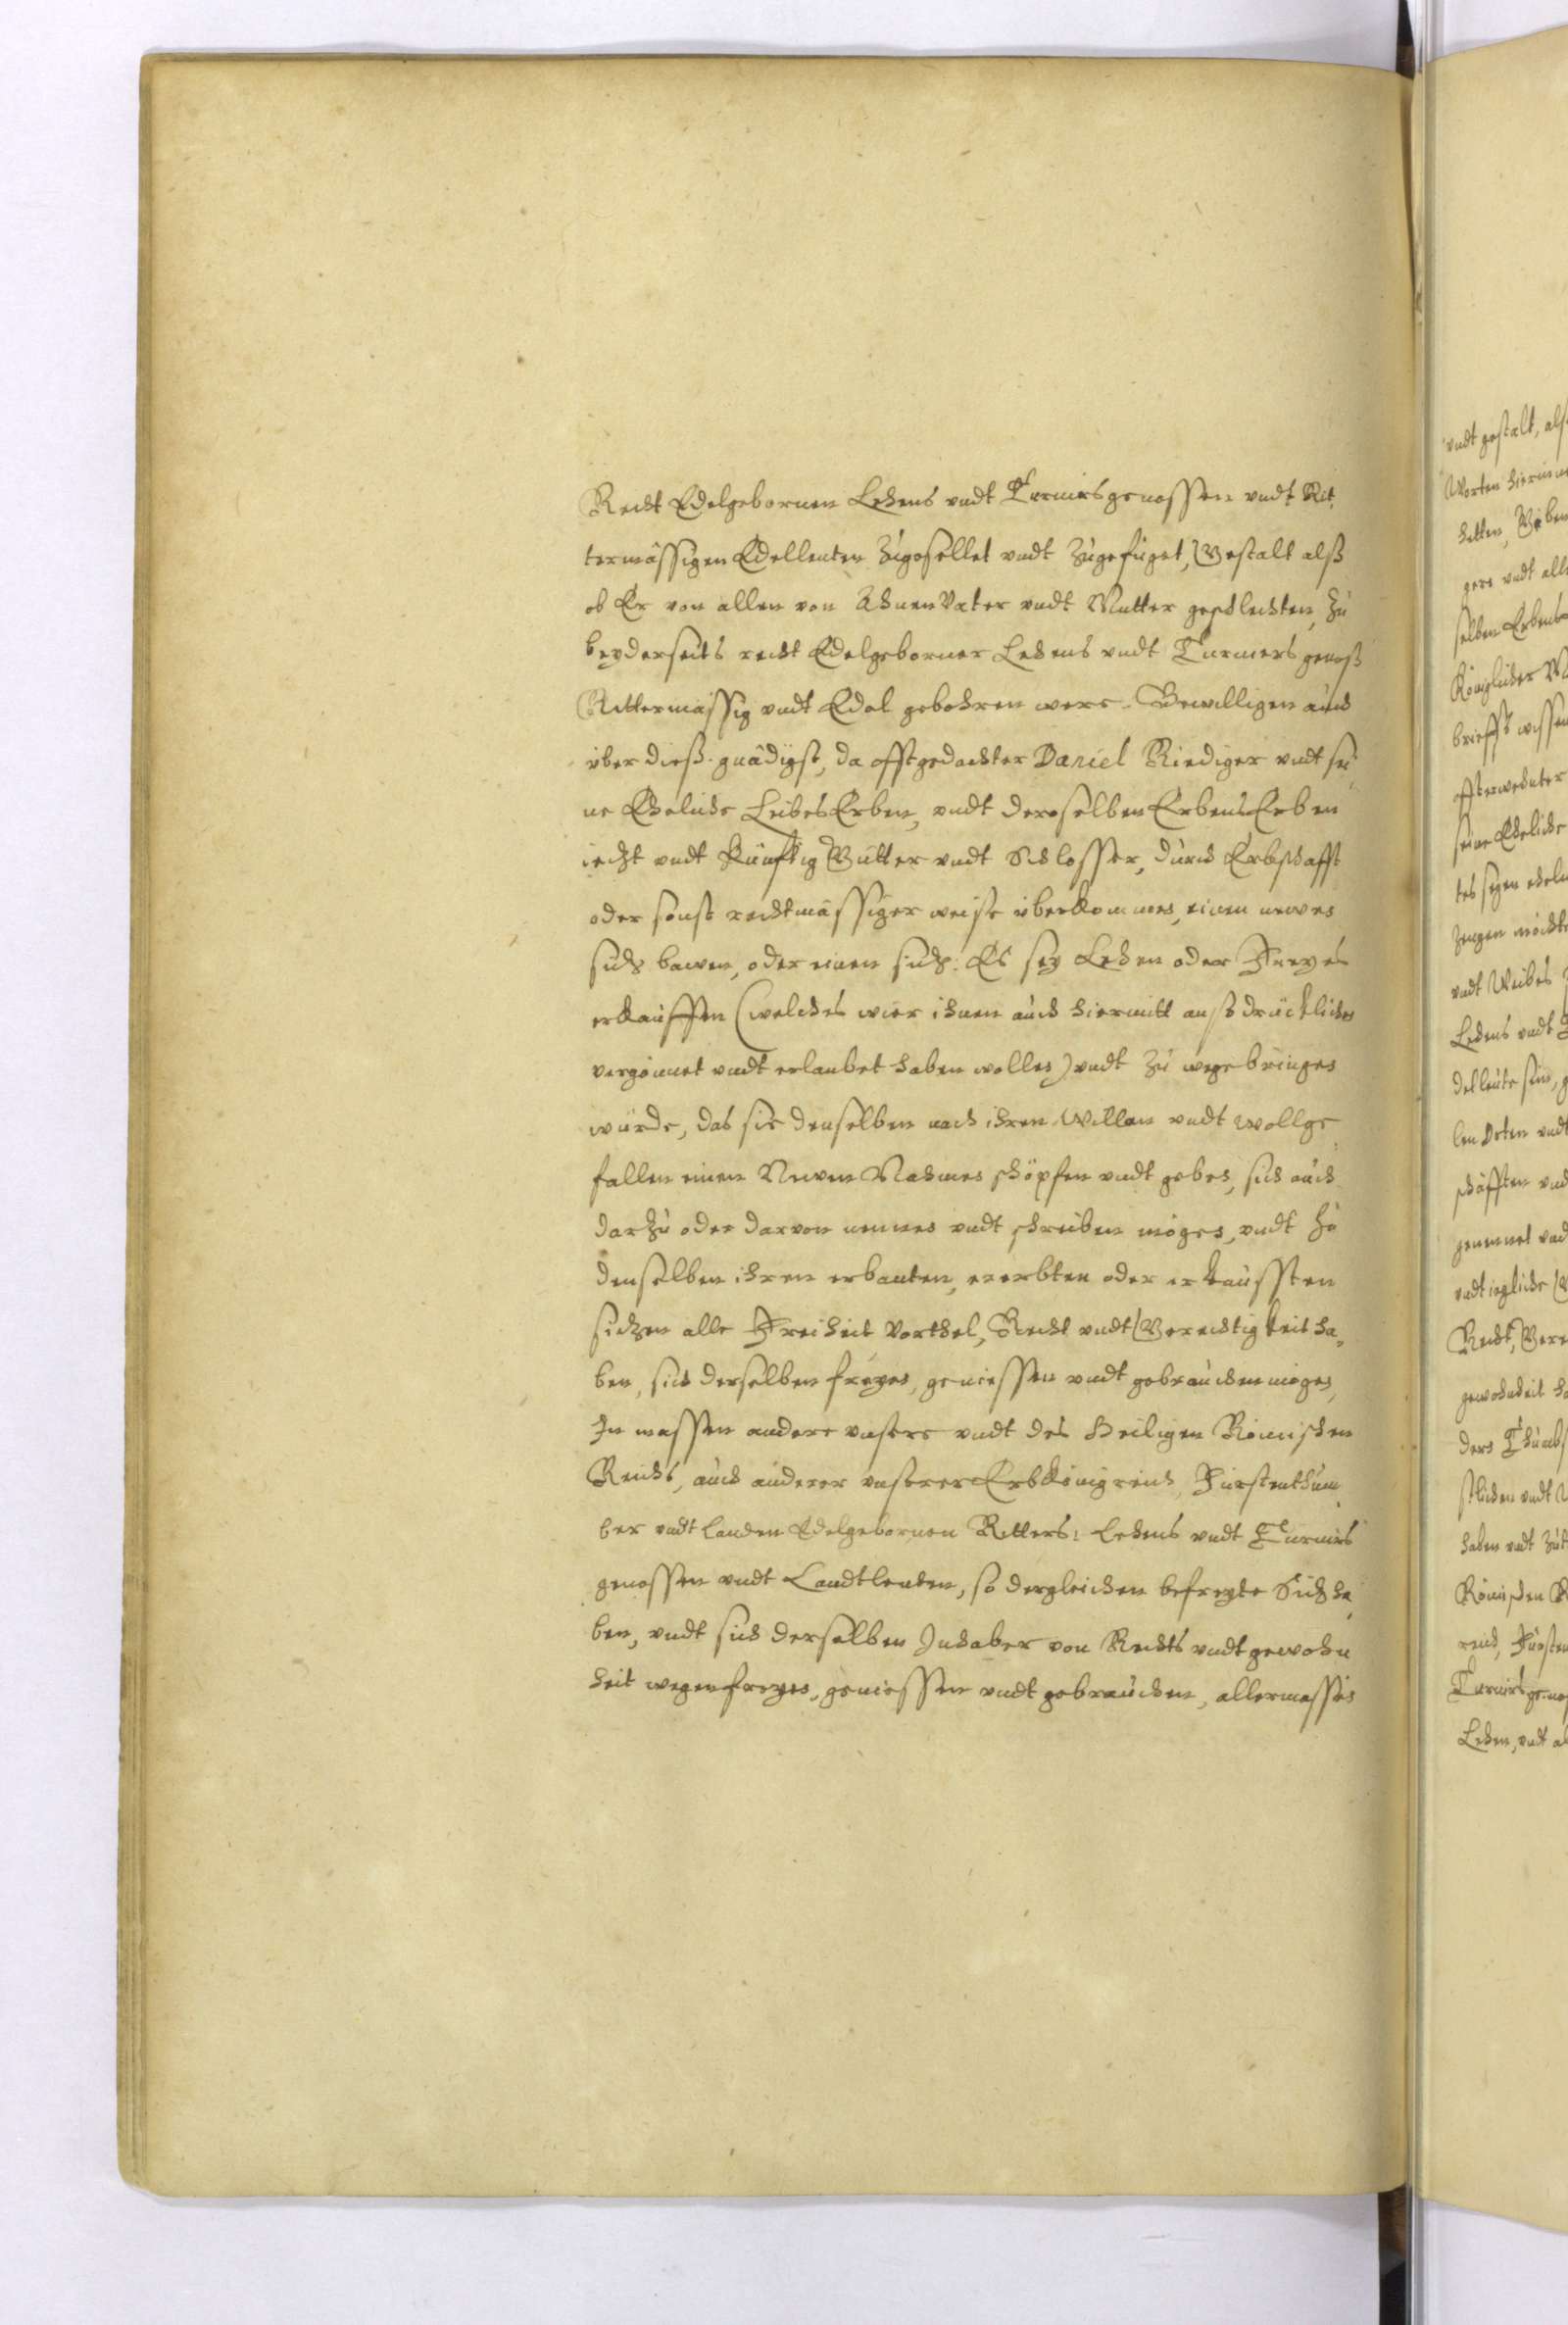 Recht Edelgebornen Lehens vndt Turniersgenossen vndt Rit,
termässigen Edelleuten zugesellet vndt zugefüget, Gestalt alß
ob Er von allen von Ahnen Vater vndt Mutter geschlechten, zu
beyderseits recht Edelgeborner Lehens vndt Turniers genoß
Rittermässig vndt Edel gebohren were. Bewilligen auch
über dieß gnädigst, da offtgedachter Daniel Riediger vndt sei,
ne Eheliche LeibesErben, vndt deroselben ErbensErben
iezt vndt künftig Gütter vndt Schlösser, durch Erbschafft
oder sonst rechtmässiger weise überkommen, einen newen
sitz bawen, oder einen sitz: Es sey Lehen oder Freyes
erkauffen (welches wier ihnen auch hiermitt außdrücklichen
vergönnet vndt erlaubet haben wollen) vndt zu wege bringen
würde, das sie denselben nach ihren Willen vndt wollge,
fallen einen Newen Nahmen schöpfen vndt geben, sich auch
darzu oder darvon nennen vndt schreiben mögen, vndt zu
denselben ihren erbauten, ererbten oder erkaufften
sitzen alle Freiheit Vorthel, Recht vndt Gerechtigkeit ha,
ben, sich derselben freyen, geniessen vndt gebrauchen mögen,
In massen andere vnsere vndt des Heiligen Römischen
Reichs, auch anderer vnserer Erbkönigreich, Fürstenthüm,
ber vndt Landen Edelgebornen Ritters: Lehens vndt Turniers
genossen vndt Landtleuten, so dergleichen befreyte Sitz ha,
ben, vndt sich derselben Inhaber von Rechts vndt gewohn
heit wegen freyen, geniessen vndt gebrauchen, allermassen
vndt gestalt, alß
Worten hierinne
hetten,
gere vndt alle
selben Erbens
Königlicher
brieffs wissen
offterwehnter
seine Eheliche
vndt Weibes
Lehens vndt
delleute sein,
len Orten vndt
schäfften vnd
genennet vnd
vndt iegliche
Recht,
gewohnheit
haben vndt
Römischen
reich, Fürsten
Turniersgenos
Lehen, vndt